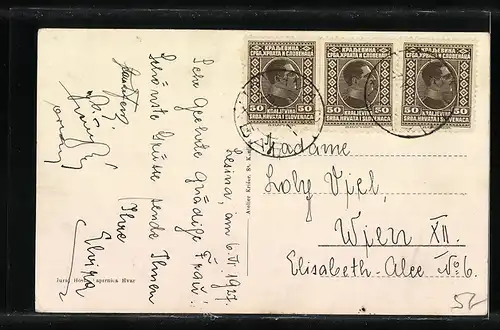 КРАЉЕВИНА
СРБА, ХРВАТА И СЛОВЕНАЦА
50 50
KRALJEVINA
SRBA, HRVATA I SLOVENACA
КРАЉЕВИНА
СРБА, ХРВАТА И СЛОВЕНАЦА
50 50
KRALJEVINA
SRBA, HRVATA I SLOVENACA
КРАЉЕВИНА
СРБА, ХРВАТА И СЛОВЕНАЦА
50 50
KRALJEVINA
SRBA, HRVATA I SLOVENACA
Lesina, am 6. VI. 1927.
Sehr Geehrte Gnädige Frau!
Schönste Grüsse sendet Ihnen
Ihre
Elvira
Madame
Loly Vjel,
Wjen XII.
Elisabeth-Alee No 6.
Hvar